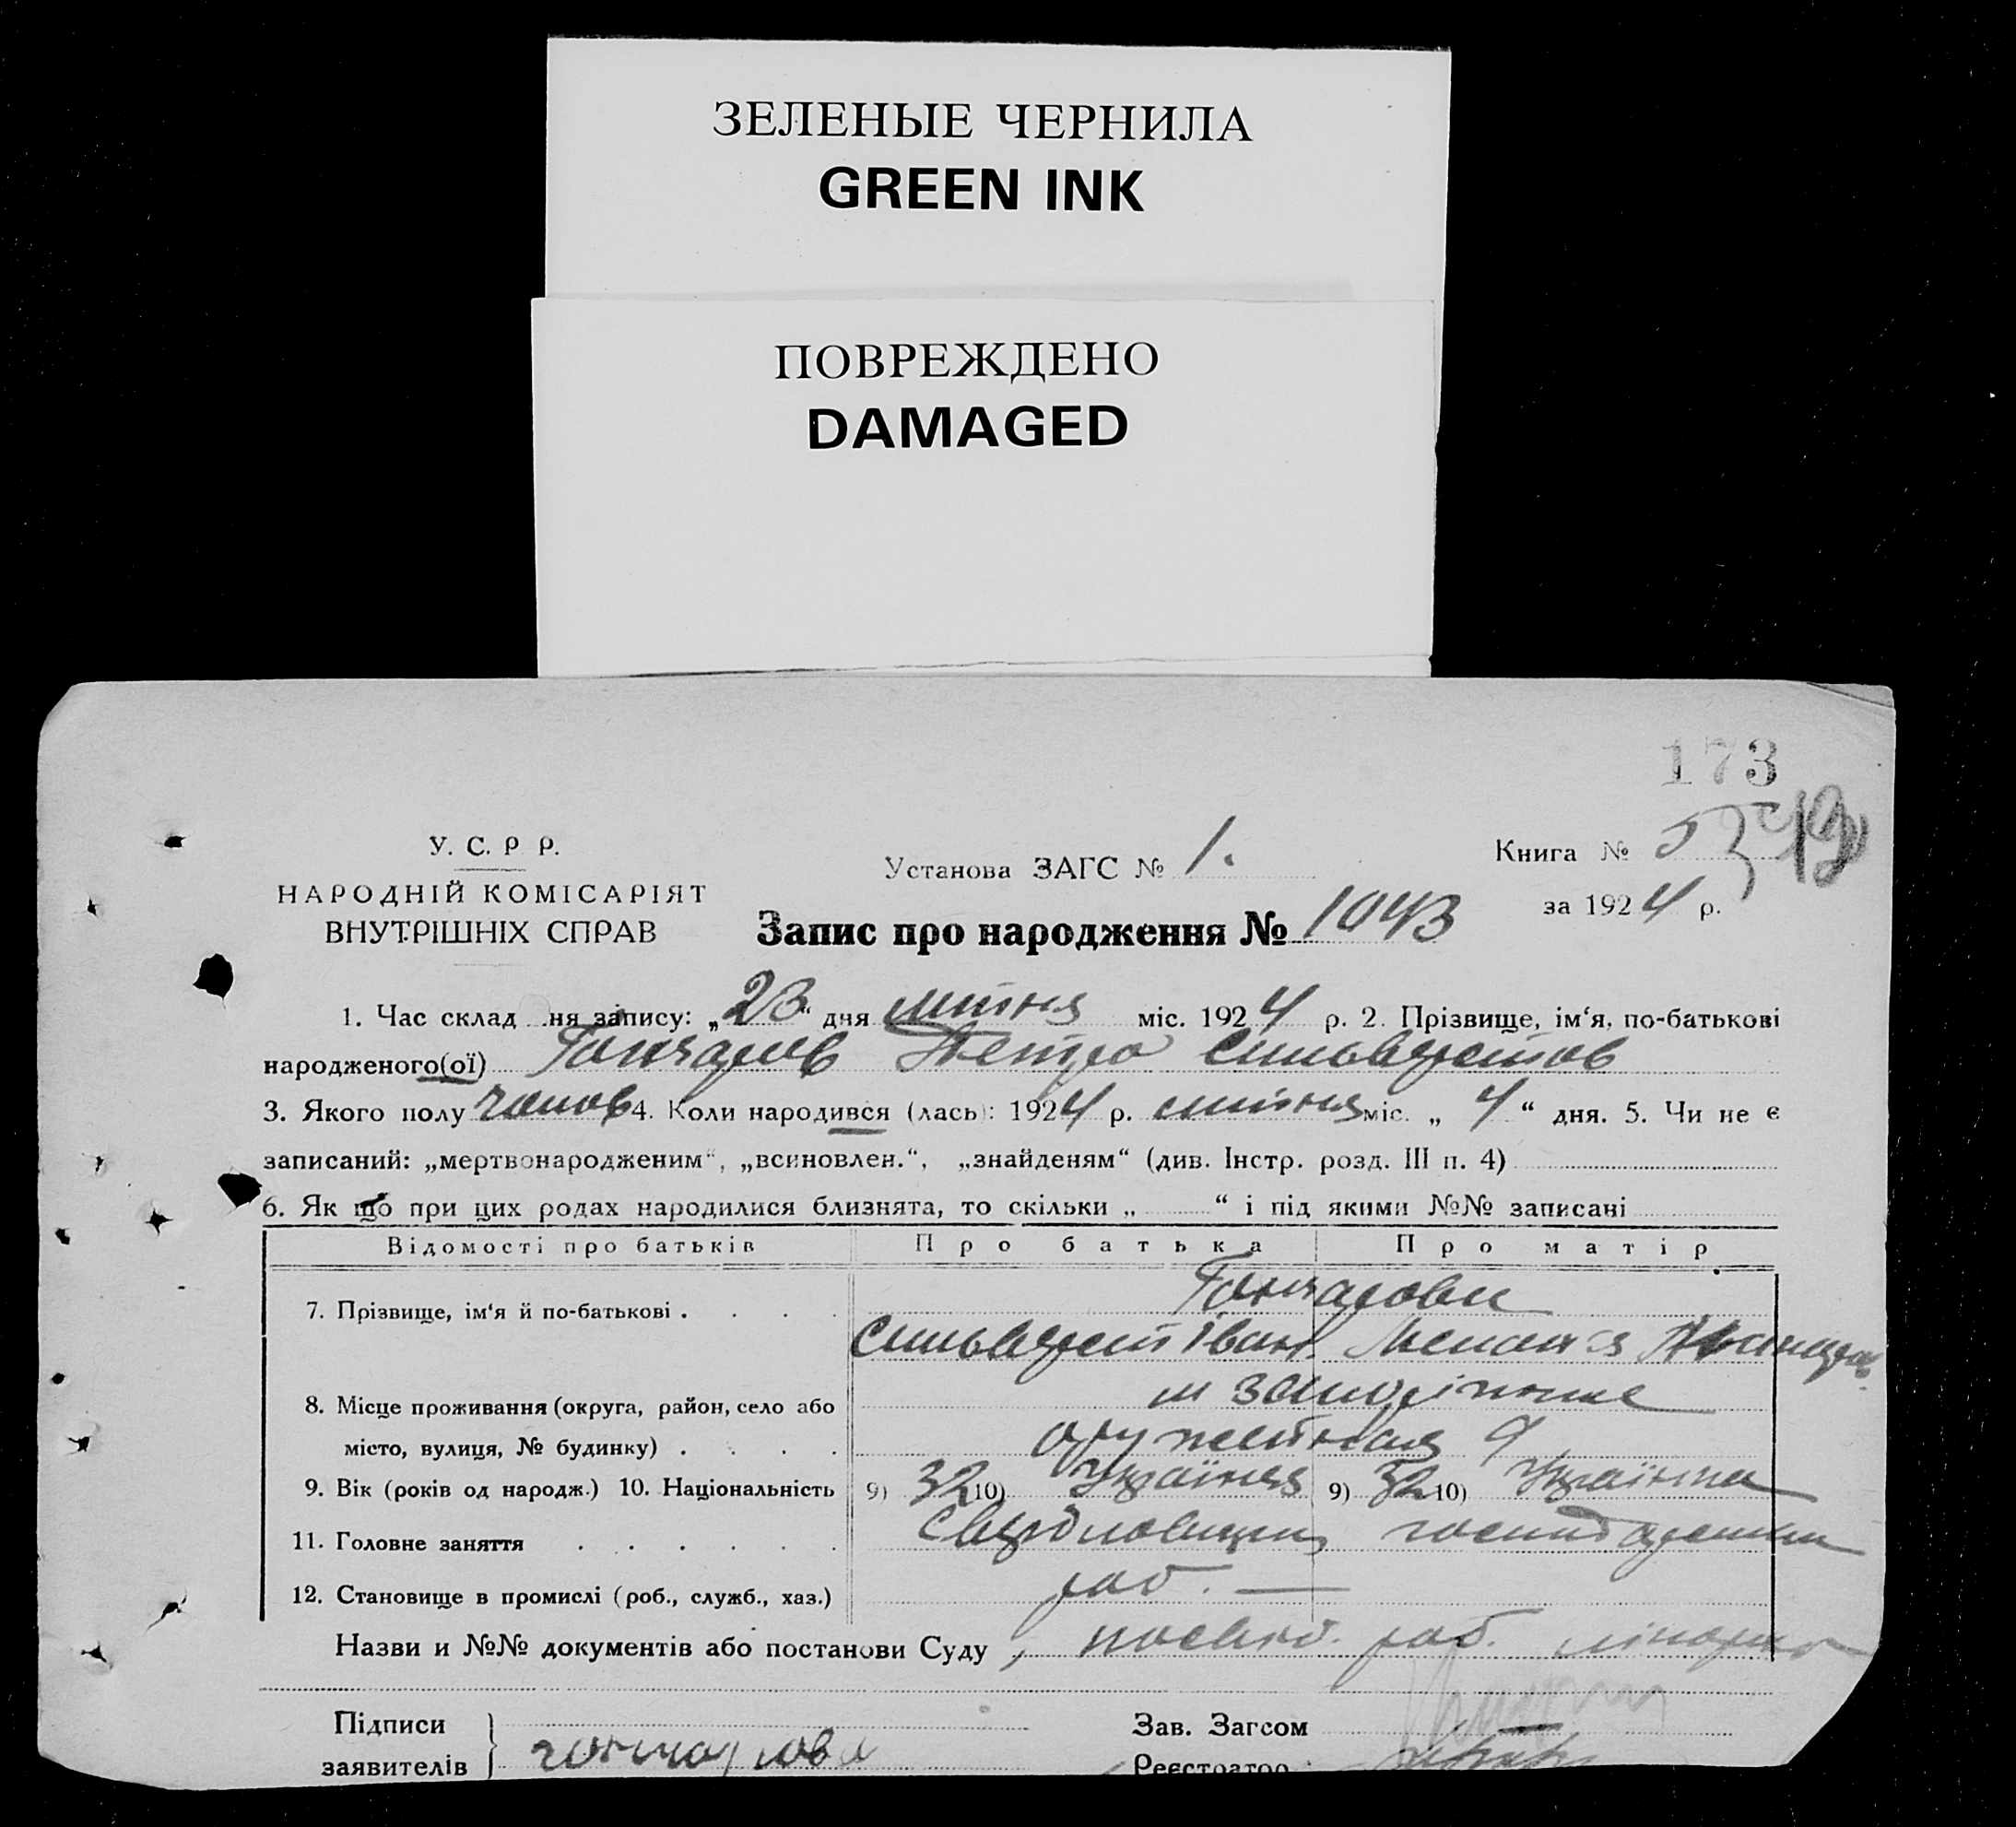 ЗЕЛЕНЫЕ ЧЕРНИЛА
GREEN INK
ПОВРЕЖДЕНО
DAMAGED
173
У. С. Р Р.
НАРОДНІЙ КОМІСАРІЯТ
ВНУТРІШНІХ СПРАВ
Установа ЗАГС № 1.
Книга №
за 1924 р.
Запис про народження № 1043
1. Час склад ня запису: „23“ дня липня міс. 1924 р. 2. Прізвище, ім‘я, по-батькові
народженого(ої) Гончаров Петро Сильверстов
3. Якого полу чолов 4. Коли народився (лась): 1924 р. липня міс. „4“ дня. 5. Чи не є
записаний: „мертвонародженим“, „всиновлен.“, „знайденям“ (див. Інстр. розд. III п. 4)
6. Як що при цих родах народилися близнята, то скільки „ “ і під якими №№ записані
Відомості про батьків Про батька Про матір
7. Прізвище, ім‘я й по-батькові . . . . Гончарови
Сильверст Іван.
8. Місце проживання (округа, район, село або м Запоріжже
місто, вулиця, № будинку) . . . . 9
9. Вік (років од народж.) 10. Національність 9) 32 10) Українец 9) 32 10) Українка
11. Головне заняття . . . . . .
12. Становище в промислі (роб., служб., хаз.) роб. —
Назви и №№ документів або постанови Суду посвід. роб.
Підписи
заявителів } гончарова
Зав. Загсом
Реєстратор